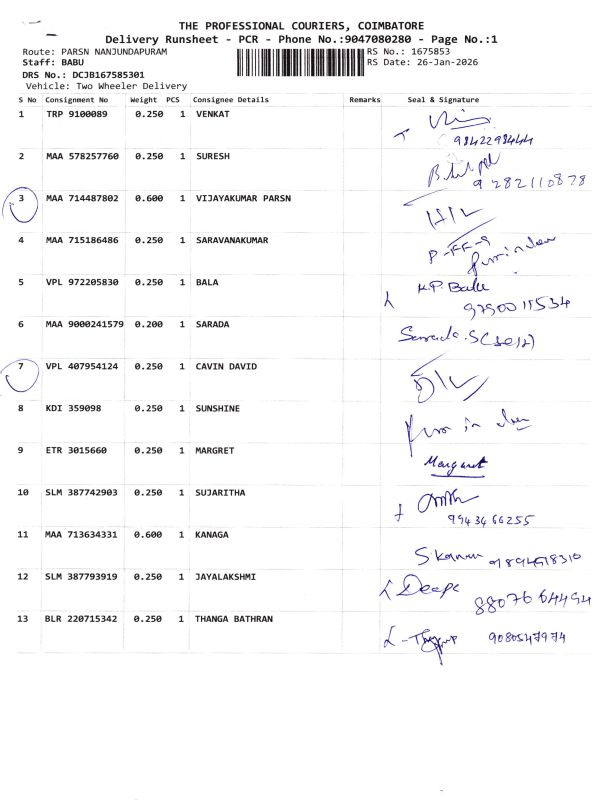 THE PROFESSIONAL COURIERS, COIMBATORE
Delivery Runsheet - PCR - Phone No.:9047080280 - Page No.:1
Route: PARSN NANJUNDAPURAM
RS No.: 1675853
Staff: BABU
RS Date: 26-Jan-2026
DRS No.: DCJB167585301
Vehicle: Two Wheeler Delivery
S No Consignment No Weight PCS Consignee Details Remarks Seal & Signature
1 TRP 9100089 0.250 1 VENKAT
9842298444
2 MAA 578257760 0.250 1 SURESH
9282110878
3 MAA 714487802 0.600 1 VIJAYAKUMAR PARSN
4 MAA 715186486 0.250 1 SARAVANAKUMAR
P-FF-9
5 VPL 972205830 0.250 1 BALA K.P. Bala
9790011534
6 MAA 9000241579 0.200 1 SARADA Sarada.S
7 VPL 407954124 0.250 1 CAVIN DAVID
8 KDI 359098 0.250 1 SUNSHINE
9 ETR 3015660 0.250 1 MARGRET Margaret
10 SLM 387742903 0.250 1 SUJARITHA
9943466255
11 MAA 713634331 0.600 1 KANAGA
12 SLM 387793919 0.250 1 JAYALAKSHMI Deepa
8807664494
13 BLR 220715342 0.250 1 THANGA BATHRAN 9080547974